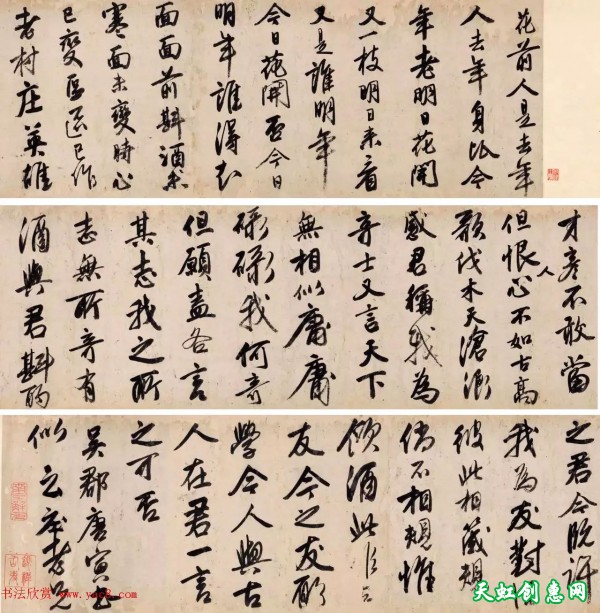 花前人是去年
人去年身比今
年老明日花開
又一枝明日來看
又是誰明年
今日花開否今日
明年誰得知
面面前斟酒酒未
寒面未變時心
已變區區已作
老村庄英雄
才彥不敢當
但恨人心不如古高
歌伐木天滄浪
感君稱我為
奇士又言天下
無相似庸庸
碌碌我何奇
但願盍各言
其志我之所
志無所奇有
酒與君斟酌
之君今既許
我為友對
彼此相箴規
倘不相規惟
飲酒此
友今之友所
學今人與古
人在君一言
之可否
吳郡唐寅書
似
书法欣赏 www.yac8.com
天虹创惠网